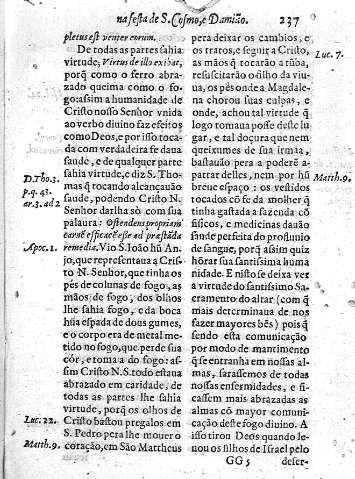 na festa de S. Cosmo, e Damião. 237
pletus est venter eorum.
De todas as partes sahia
virtude; Virtus de illo exibat,
porq̃ como o ferro abra-
zado queima como o fo-
go: assim a humanidade de
Cristo nosso Senhor vnida
ao verbo diuino faz efeitos
como Deos, e por isso toca-
da com verdadeira fé daua
saude, e de qualquer parte
sahia virtude, e diz S. Tho-
mas q̃ tocando alcançauão
saude, podendo Cristo N.
Senhor darlha só com sua
palaura: Ostendens propriam
carnē efficacē esse ad præstāda
remedia. Vio S. Ioão hū An-
jo, que representaua a Cris-
to N. Senhor, que tinha os
pés de colunas de fogo, as
mãos de fogo, dos olhos
lhe sahia fogo, e da boca
hūa espada de dous gumes,
e o corpo era de metal me-
tido no fogo, que perde sua
cór, e toma a do fogo: as-
sim Cristo N. S. todo estaua
abrazado em caridade, de
todas as partes lhe sahia
virtude, porq̃ os olhos de
Cristo bastou pregalos em
S. Pedro pera lhe mouer o
coração, em São Mattheus
D. Tho. 3.
p. q. 43.
ar. 3. ad 2
Apoc. 1.
Luc. 22.
Matth. 9.
pera deixar os cambos, e
os tratos, e seguir a Cristo,
as mãos q̃ tocarão a tūba,
resuscitarão o filho da viu-
ua, os pés onde a Magdale-
na chorou suas culpas, e
onde, achou tal virtude q̃
logo tomaua posse deste lu-
gar, e tal doçura que nem
queixumes de sua irmãa,
bastauão pera a poderē a-
partar delles, nem por hū
breue espaço: os vestidos
tocados cō fé da molher q̃
tinha gastada a fazenda cō
fisicos, e medicinas dauão
saude perfeita do profluuio
de sangue, porq̃ assim quiz
hõrar sua santissima huma
nidade. E nisto se deixa ver
a virtude do santissimo Sa-
cramento do altar (com q̃
mais determinaua de nos
fazer mayores bēs) pois q̃
sendo esta comunicação
por modo de mantimento
q̃ se entranha em nossas al-
mas, sarassemos de todas
nossas enfermidades, e fi-
cassem mais abrazadas as
almas cō mayor comuni-
cação deste fogo diuino. A
isso tirou Deos quando le-
uou os filhos de Israel pelo
Luc. 7.
Matth. 9.
GG 5 deser-